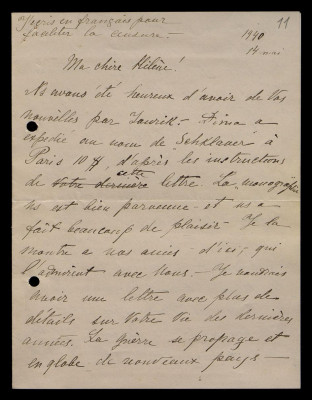 J'écris en français pour
faciliter la censure. —
11
1940
14 mai
Ma chère Hélène!
Ns avons été heureux d'avoir de vos
nouvelles par Yourik. — Dima a
expédié au nom de Schklaver à
Paris 10 $, d'après les instructions
de votre dernière cette lettre. La monographie
ns est bien parvenue et ns a
fait beaucoup de plaisir — Je la
montre a nos amis d'ici, qui
l'admirent avec nous. — Je voudrais
avoir une lettre avec plus de
détails sur Votre vie des dernières
années. La guerre se propage et
englobe de nouveaux pays —